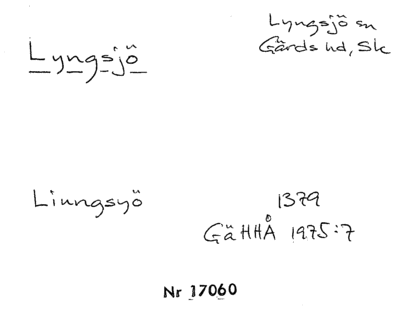 Lyngsjö
Lyngsjö sn
Gärds hd, Sk
Liungsyö
1379
GäHHÅ 1975:7
Nr 17060